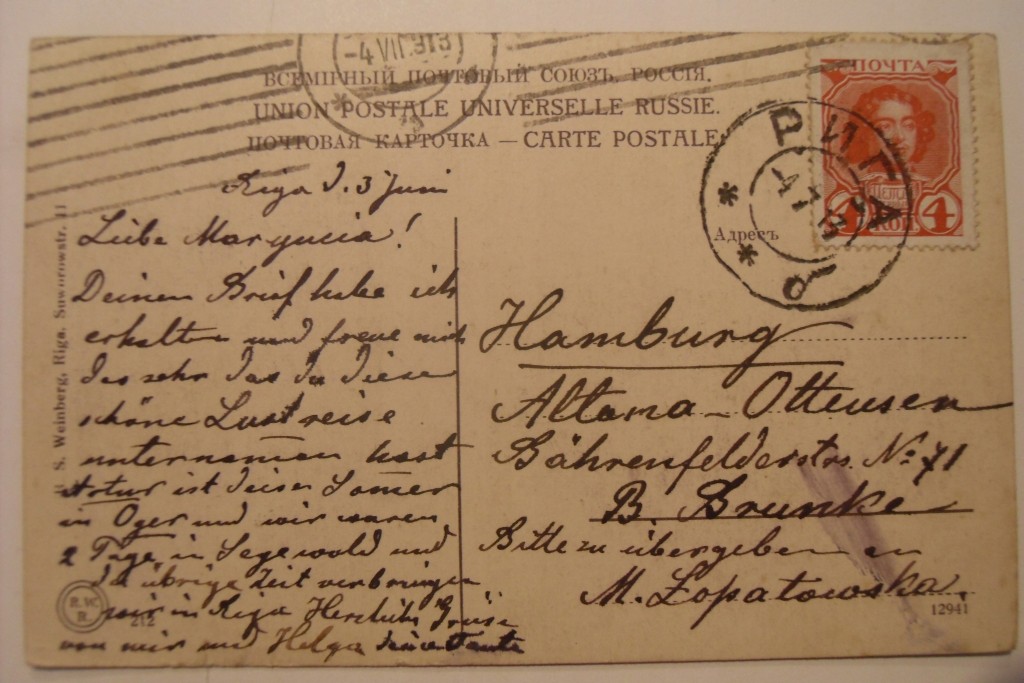 ВСЕМІРНЫЙ ПОЧТОВЫЙ СОЮЗЪ. РОССІЯ.
UNION POSTALE UNIVERSELLE RUSSIE.
ПОЧТОВАЯ КАРТОЧКА — CARTE POSTALE
ПОЧТА
4 КОП 4
РИГА
Адресъ
Riga d. 3 Juni
Liebe Maryncia!
Deinen Brief habe ich
erhalten und freue mich
das sehr das du diese
schöne Lustreise
unternomen hast
Artur ist diesen Somer
in Oger und wir waren
2 Tage in Segewold und
da übrige Zeit verbringen
wir in Riga Herzliche Grüse
von mir und Helga deine Tante
Hamburg
Altona-Ottensen
Bährenfelderstrs. No 71
B. Brunke
Bitte zu übergeben an
M. Lopatowska.
S. Weinberg, Riga, Suworowstr. 11
R.W.
R.
212
12941